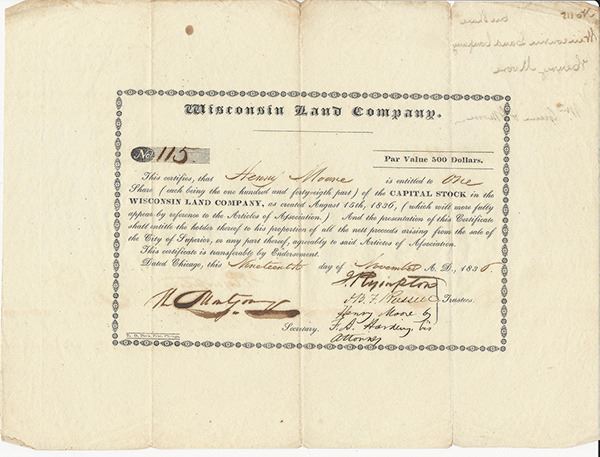 Wisconsin Land Company.
No. 115
Par Value 500 Dollars.
This certifies, that Henry Moore is entitled to One
Share (each being the one hundred and forty-eigth part) of the CAPITAL STOCK in the
WISCONSIN LAND COMPANY, as created August 15th, 1836, (which will more fully
appear by reference to the Articles of Association.) And the presentation of this Certificate
shall entitle the holder thereof to his proportion of all the nett proceeds arising from the sale of
the City of Superior, or any part thereof, agreeably to said Articles of Association.
This certificate is transferable by Endorsement.
Dated Chicago, this Nineteenth day of November A. D., 1836.
Trustees.
Henry Moore by
F. A. Harding his
Attorney
Secretary.